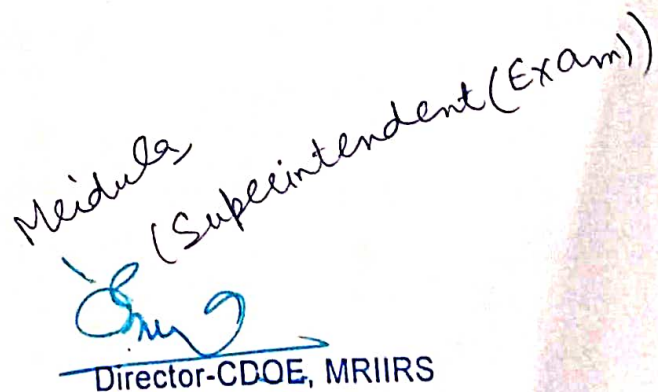 Mridula
(Superintendent(Exam))
Director-CDOE, MRIIRS